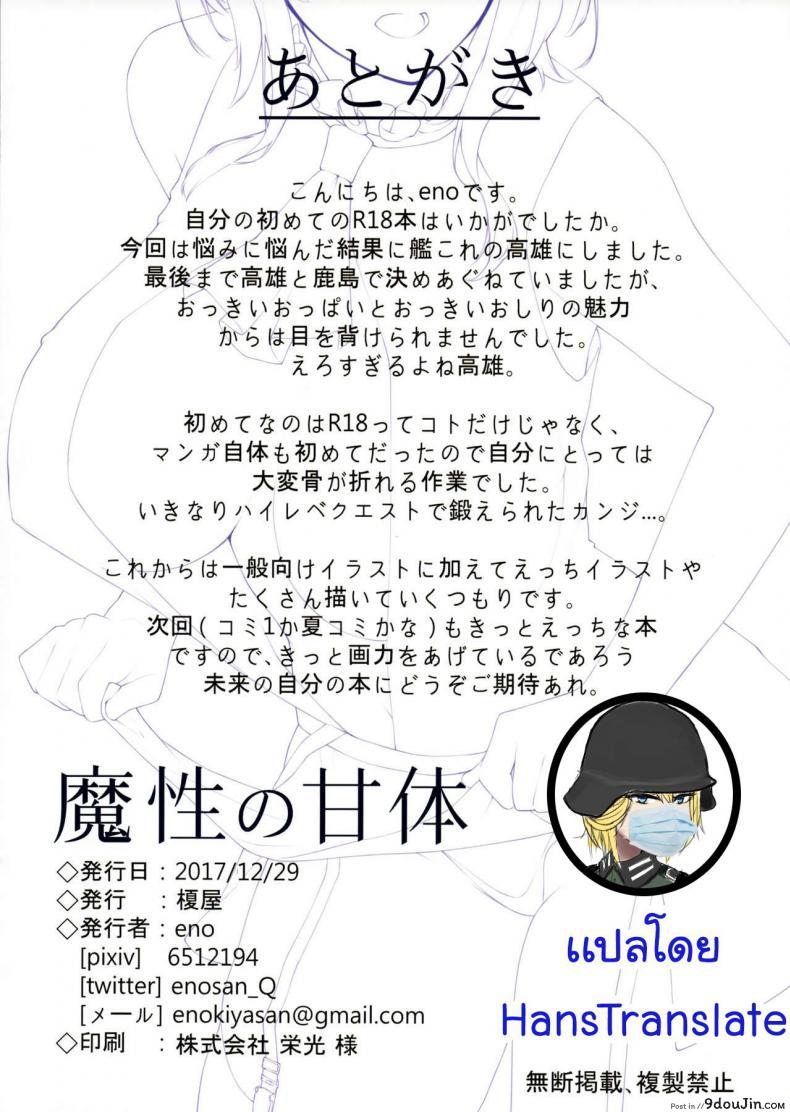 あとがき
こんにちは、enoです。
自分の初めてのR18本はいかがでしたか。
今回は悩みに悩んだ結果に艦これの高雄にしました。
最後まで高雄と鹿島で決めあぐねていましたが、
おっきいおっぱいとおっきいおしりの魅力
からは目を背けられませんでした。
えろすぎるよね高雄。
初めてなのはR18ってコトだけじゃなく、
マンガ自体も初めてだったので自分にとっては
大変骨が折れる作業でした。
いきなりハイレベクエストで鍛えられたカンジ...。
これからは一般向けイラストに加えてえっちイラストや
たくさん描いていくつもりです。
次回(コミ1か夏コミかな)もきっとえっちな本
ですので、きっと画力をあげているであろう
未来の自分の本にどうぞご期待あれ。
魔性の甘体
◇発行日:2017/12/29
◇発行 :榎屋
◇発行者:eno
[pixiv] 6512194
[twitter] enosan_Q
[メール] enokiyasan@gmail.com
◇印刷 :株式会社 栄光 様
แปลโดย
HansTranslate
無断掲載、複製禁止
Post in // 9douJin.com